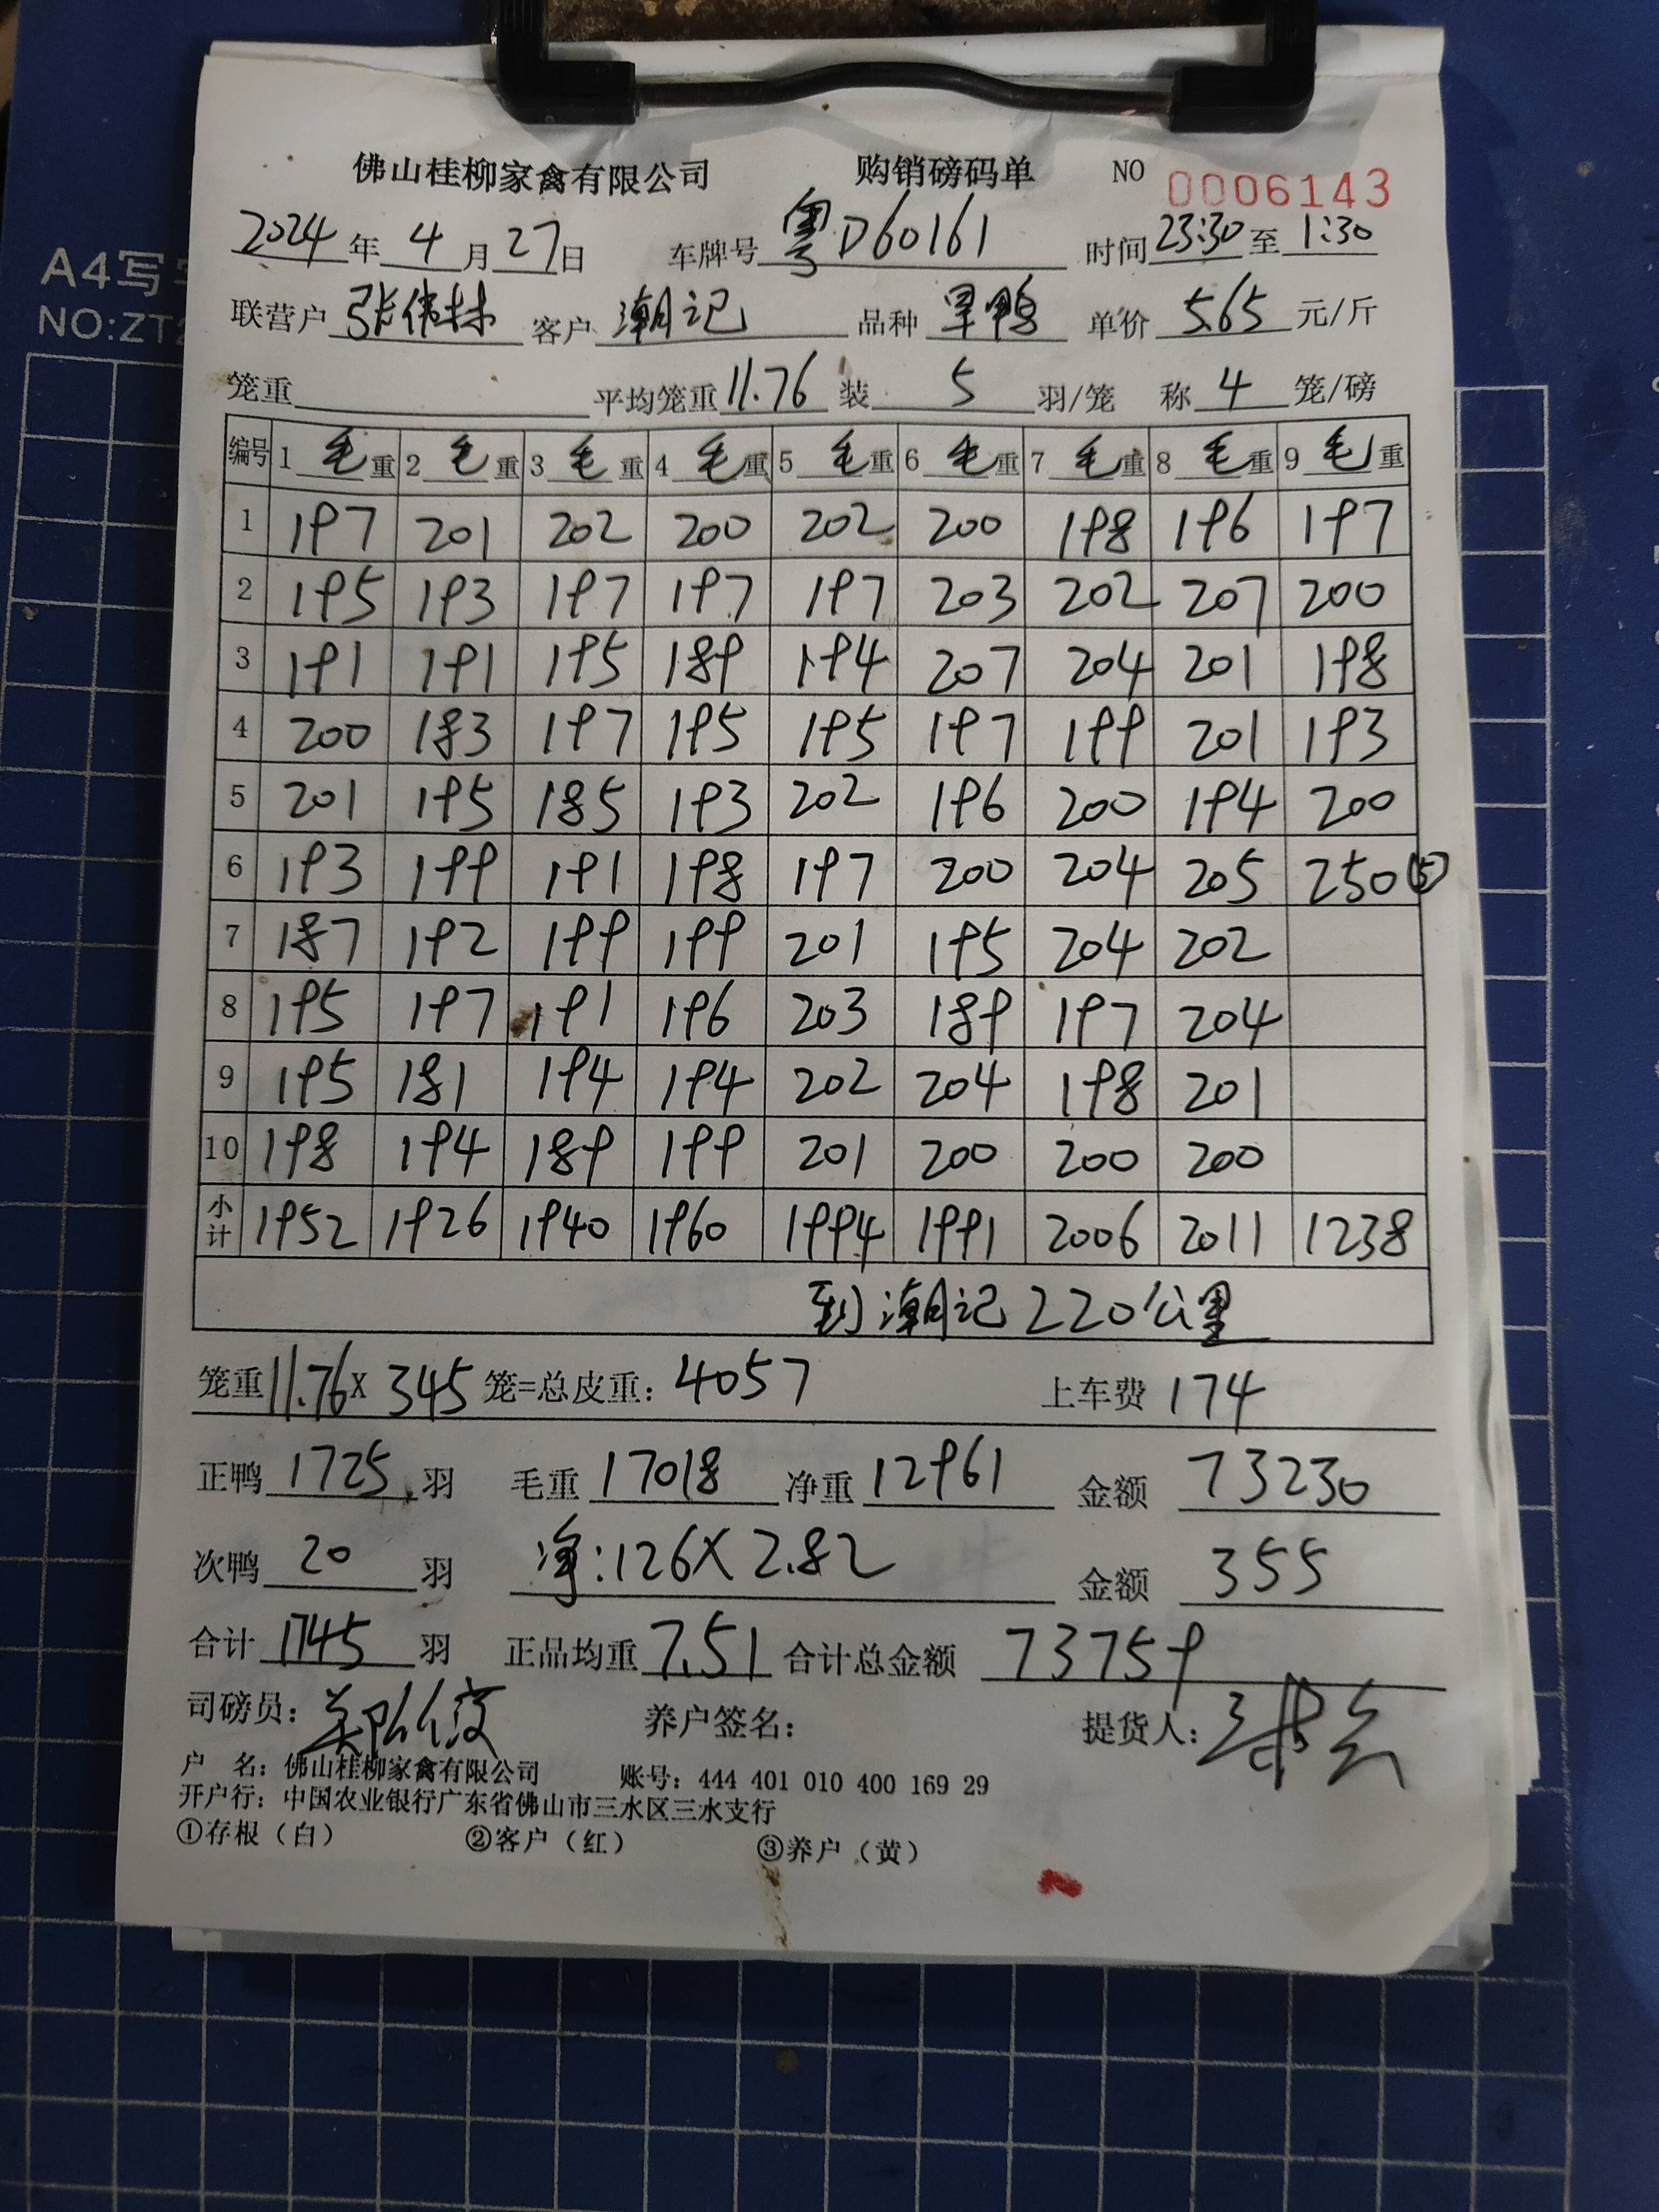 A4写
NO:ZT2
佛山桂柳家禽有限公司 购销磅码单 NO 0006143
2024年4月27日 车牌号 粤D60161 时间 23:30 至 1:30
联营户 张伟林 客户 潮记 品种 旱鸭 单价 5.65 元/斤
笼重 平均笼重 11.76 装 5 羽/笼 称 4 笼/磅
编号 1 毛重 2 毛重 3 毛重 4 毛重 5 毛重 6 毛重 7 毛重 8 毛重 9 毛重
1 197 201 202 200 202 200 198 196 197
2 195 193 197 197 197 203 202 207 200
3 191 191 195 189 194 207 204 201 198
4 200 183 197 195 195 197 199 201 193
5 201 195 185 193 202 196 200 194 200
6 193 199 191 198 197 200 204 205 250 ⑤
7 187 192 199 199 201 195 204 202
8 195 197 191 196 203 189 197 204
9 195 181 194 194 202 204 198 201
10 198 194 189 199 201 200 200 200
小计 1952 1926 1940 1960 1994 1991 2006 2011 1238
到潮记220公里
笼重 11.76 X 345 笼=总皮重: 4057 上车费 174
正鸭 1725 羽 毛重 17018 净重 12961 金额 73230
次鸭 20 羽 净:126X2.82 金额 355
合计 1745 羽 正品均重 7.51 合计总金额 73759
司磅员: 养户签名: 提货人:
户 名: 佛山桂柳家禽有限公司 账号: 444 401 010 400 169 29
开户行: 中国农业银行广东省佛山市三水区三水支行
①存根（白） ②客户（红） ③养户（黄）